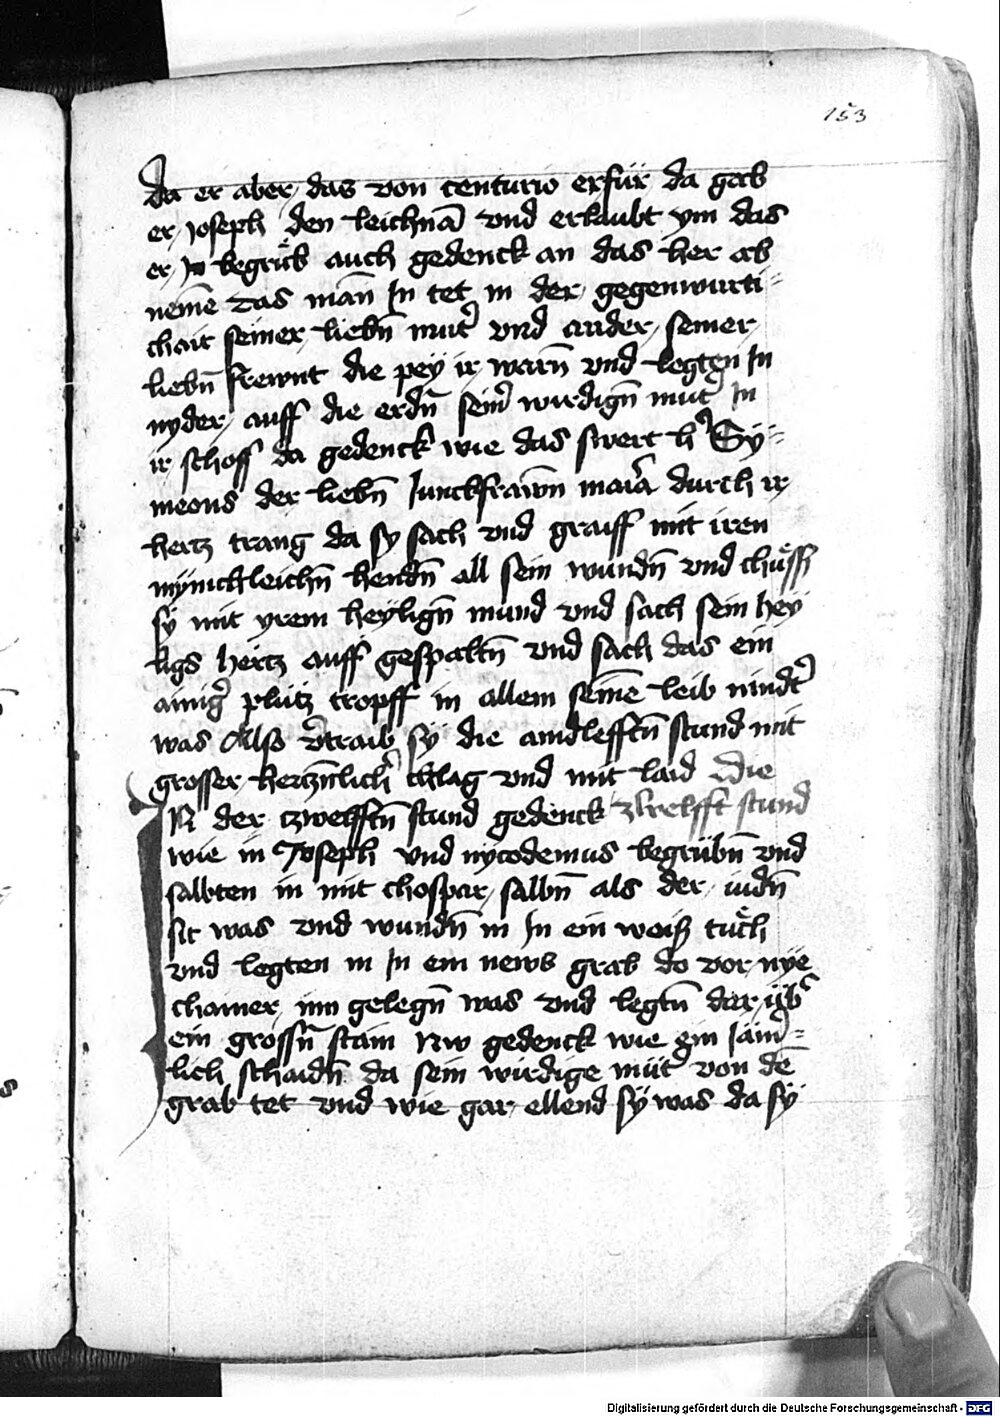 153
da er aber das von centurio erfür da gab
er Joseph den leichnā vnd erlaubt ym das
er Jn begrůb auch gedenck an das her ab
neme̅ das man Jn tet in der gegenwurti=
chait seiner liebn̄ mut͛ vnd ander seiner
liebn̄ frewnt die pey ir warn̄ vnd legten Jn
nyder auff die erdn̄ sein͛ wirdign̄ mut͛ Jn
ir schoss da gedenck wie das swert h͛ Sÿ=
meons der liebn̄ Junckfrawn̄ maria durch ir
hertz trang da sy sach vnd graiff mit iren
mynichleichn̄ hendn̄ all sein wundn̄ vnd chůsst
sÿ mit yrem heylign̄ mund vnd sach sein hey
ligs hertz auff gespaltn̄ vnd sach das ein
ainig͛ plutz tropff in allem seine̅ leib nindt͛
was Also v͛traib sÿ die aindlefftn̄ stund mit
grosser hertzn̄lich͛ chlag vnd mit laid Die
JN der zwelfftn̄ stund gedenck zwelfft stund
wie in Joseph vnd nycodemus begrubn̄ vnd
salbten in mit chospar salbn̄ als der iudn̄
sit was vnd wundn̄ in Jn ein weiß tůch
vnd legten in Jn ein news grab do vor nye
chainer inn gelegn̄ was vnd legtn̄ dar üb͛
ein grossn̄ stain Nw gedenck wie ein Jam͛=
lich schaidn̄ da sein wirdige müt͛ von de̅
grab tet vnd wie gar ellend sÿ was da sÿ
Digitalisierung gefördert durch die Deutsche Forschungsgemeinschaft - DFG